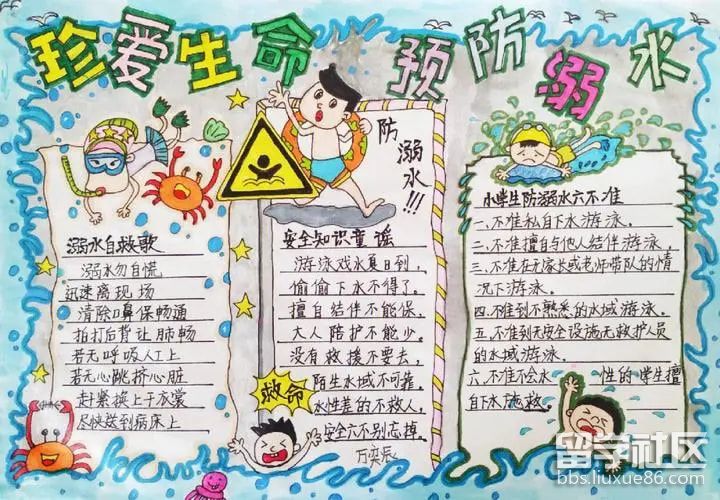 珍爱生命 预防溺水
溺水自救歌
溺水勿自慌
迅速离现场
清除口鼻保畅通
拍打后背让肺畅
若无呼吸人工上
若无心跳挤心脏
赶紧换上干衣裳
尽快送到病床上
防溺水!!!
安全知识童谣
游泳戏水夏日到,
偷偷下水不得了。
擅自结伴不能保,
大人陪护不能少。
没有救援不要去,
陌生水域不可靠。
水性差的不救人,
安全六不别忘掉。
救命
万奕辰
小学生防溺水六不准
一、不准私自下水游泳。
二、不准擅自与他人结伴游泳。
三、不准在无家长或老师带队的情
况下游泳。
四、不准到不熟悉的水域游泳。
五、不准到无安全设施无救护人员
的水域游泳。
六、不准不会水性的学生擅
自下水施救。
留学社区
bbs.liuxue86.com